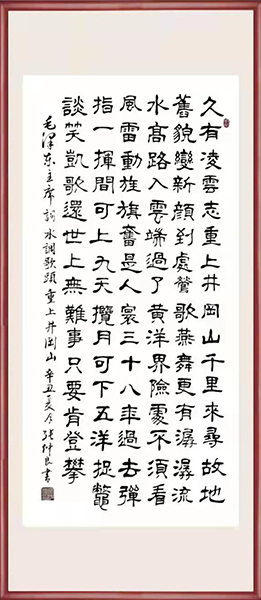 久有凌雲志重上井岡山千里來尋故地
舊貌變新顏到處鶯歌燕舞更有潺潺流
水高路入雲端過了黃洋界險處不須看
風雷動旌旗奮是人寰三十八年過去彈
指一揮間可上九天攬月可下五洋捉鱉
談笑凱歌還世上無難事只要肯登攀
毛澤东主席詞水調歌頭重上井岡山辛丑夏月張仲良書